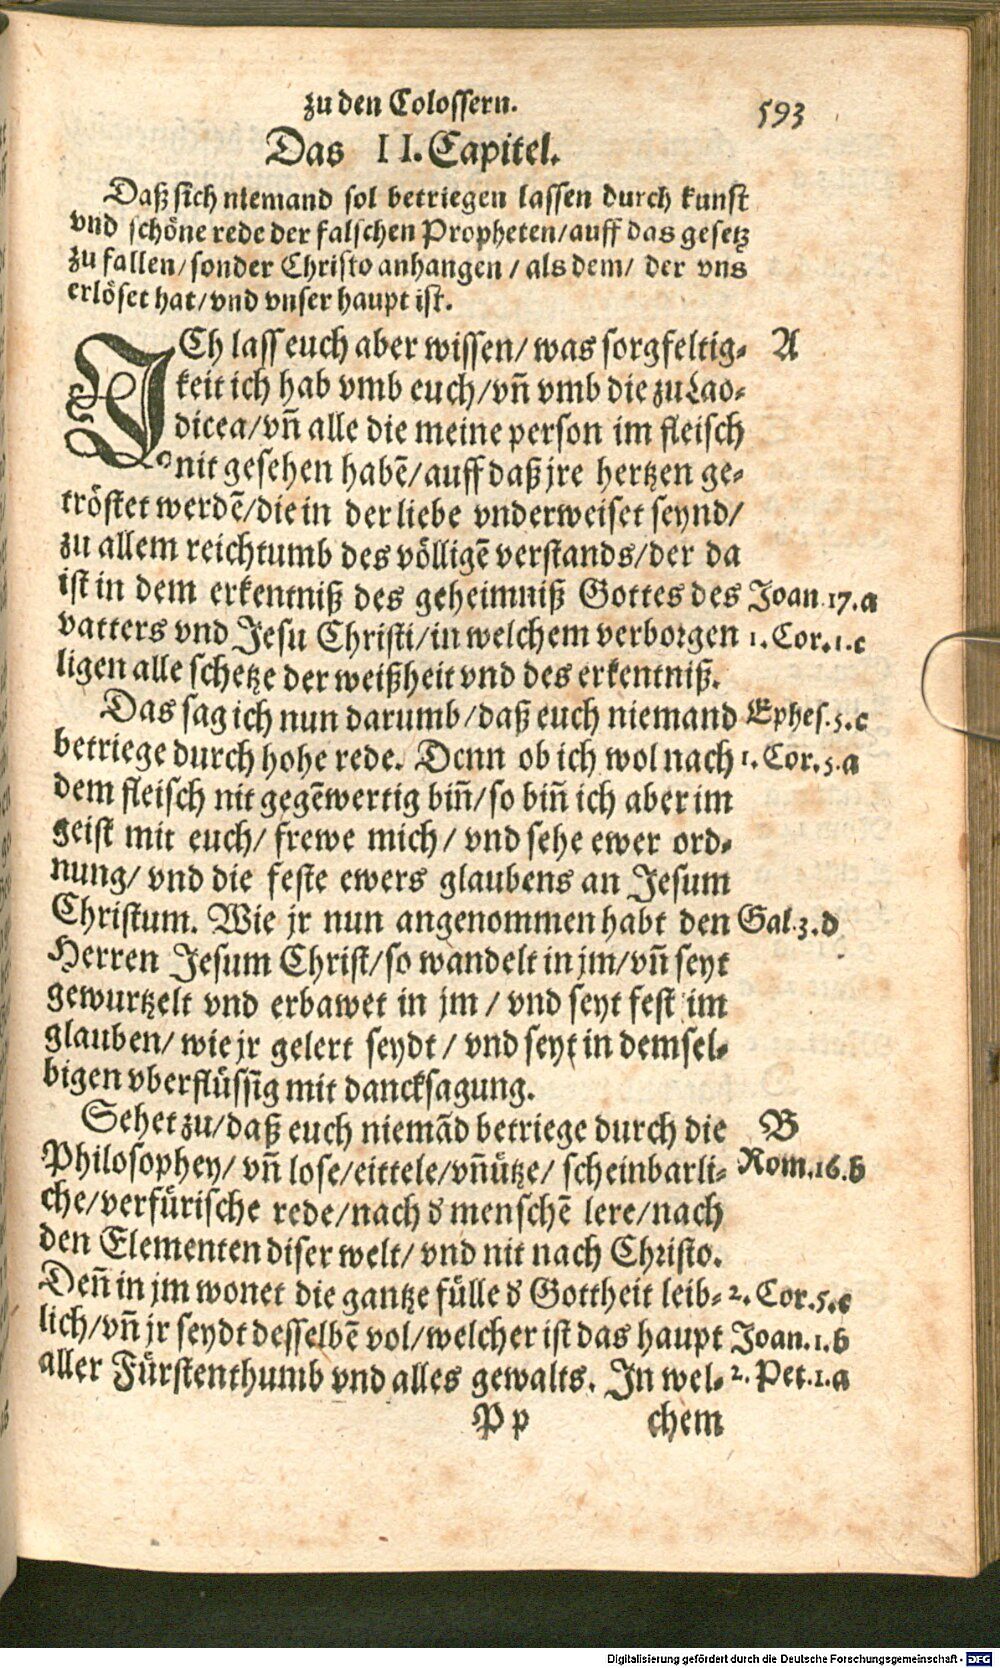 zu den Colossern. 593
Das II. Capitel.
Daß sich niemand sol betriegen lassen durch kunst
vnd schöne rede der falschen Propheten/auff das gesetz
zu fallen/sonder Christo anhangen/als dem/ der vns
erlöset hat/vnd vnser haupt ist.
ICh lass euch aber wissen/ was sorgfeltig- A
keit ich hab vmb euch/vn̄ vmb die zu Lao-
dicea/vn̄ alle die meine person im fleisch
nit gesehen habē/auff daß jre hertzen ge-
tröstet werdē/die in der liebe vnderweiset seynd/
zu allem reichtumb des völligē verstands/der da
ist in dem erkentniß des geheimniß Gottes des Joan.17.a
vatters vnd Jesu Christi/in welchem verborgen 1.Cor.1.c
ligen alle schetze der weißheit vnd des erkentniß.
Das sag ich nun darumb/daß euch niemand Ephes.5.c
betriege durch hohe rede. Denn ob ich wol nach 1.Cor.5.a
dem fleisch nit gegēwertig bin̄/so bin̄ ich aber im
geist mit euch/ frewe mich/ vnd sehe ewer ord-
nung/ vnd die feste ewers glaubens an Jesum
Christum. Wie jr nun angenommen habt den Gal.3.d
Herren Jesum Christ/so wandelt in jm/vn̄ seyt
gewurtzelt vnd erbawet in jm / vnd seyt fest im
glauben/ wie jr gelert seydt/ vnd seyt in demsel-
bigen vberflüssig mit dancksagung.
Sehet zu/daß euch niemād betriege durch die B
Philosophey/ vn̄ lose/eittele/vn̄ütze/ scheinbarli- Rom.16.b
che/verfürische rede/nach d' menschē lere/nach
den Elementen diser welt/ vnd nit nach Christo.
Den̄ in jm wonet die gantze fülle d' Gottheit leib- 2.Cor.5.e
lich/vn̄ jr seydt desselbē vol/welcher ist das haupt Joan.1.b
aller Fürstenthumb vnd alles gewalts. In wel- 2.Pet.1.a
Pp chem
Digitalisierung gefördert durch die Deutsche Forschungsgemeinschaft - DFG